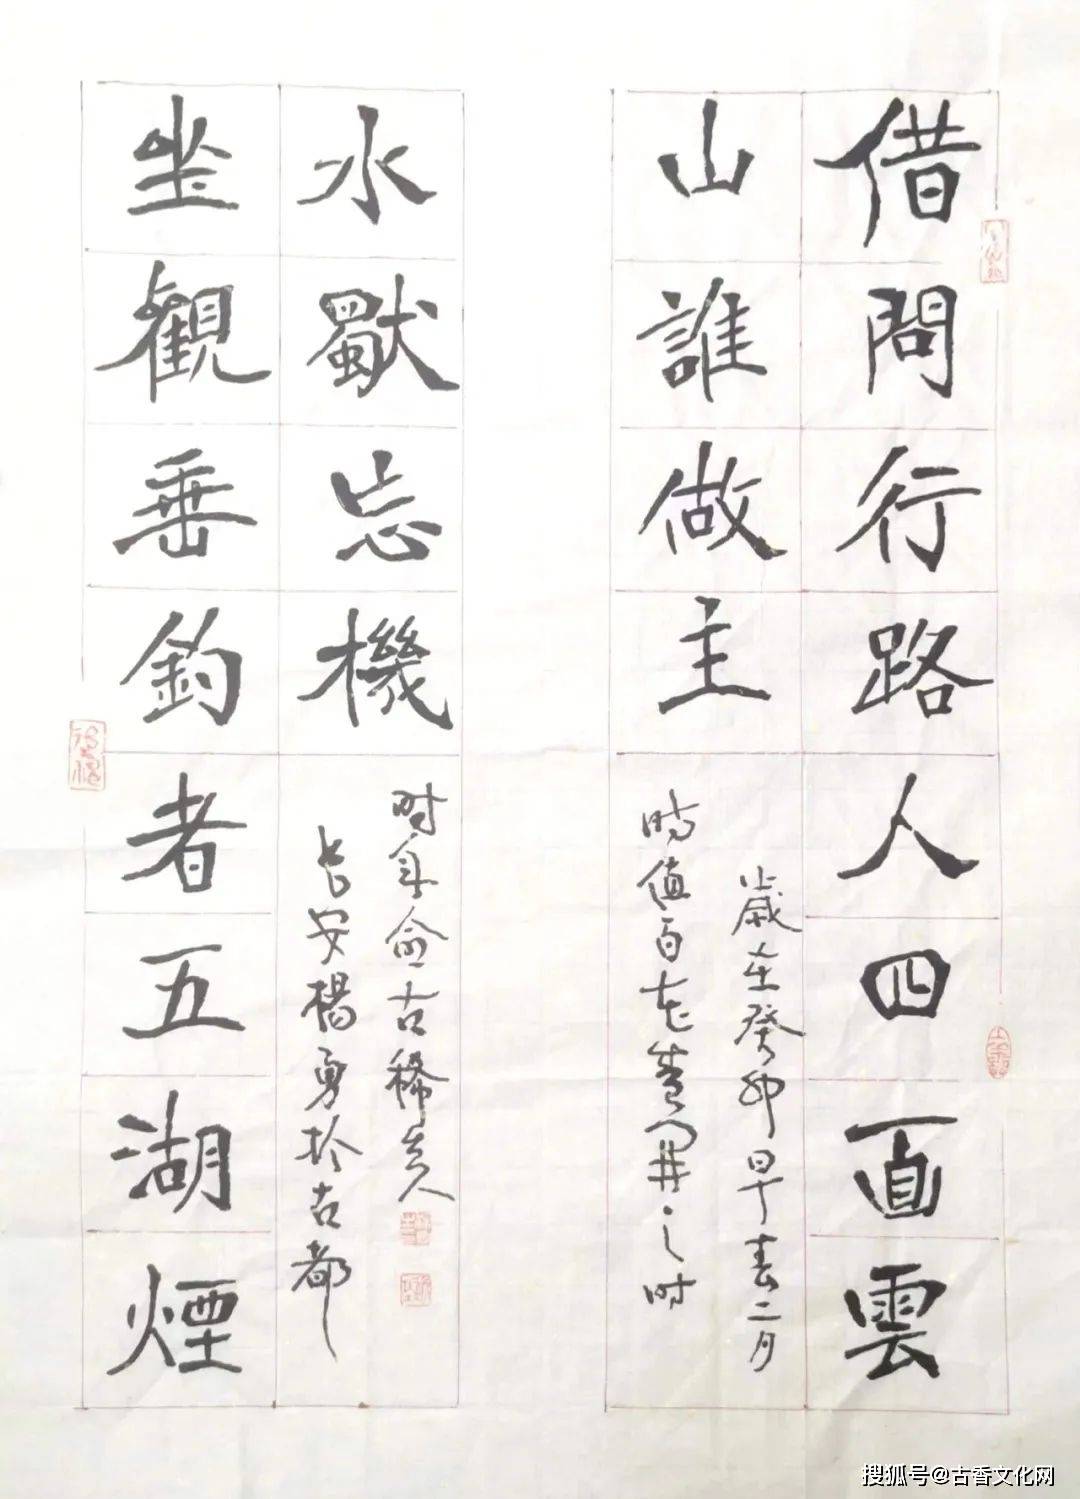 借問行路人四面雲
山誰做主
歲在癸卯早春二月
時值百花之时
坐觀垂釣者五湖煙
水獨忘機
时年古稀老人
长安楊勇於古都
搜狐号@古香文化网